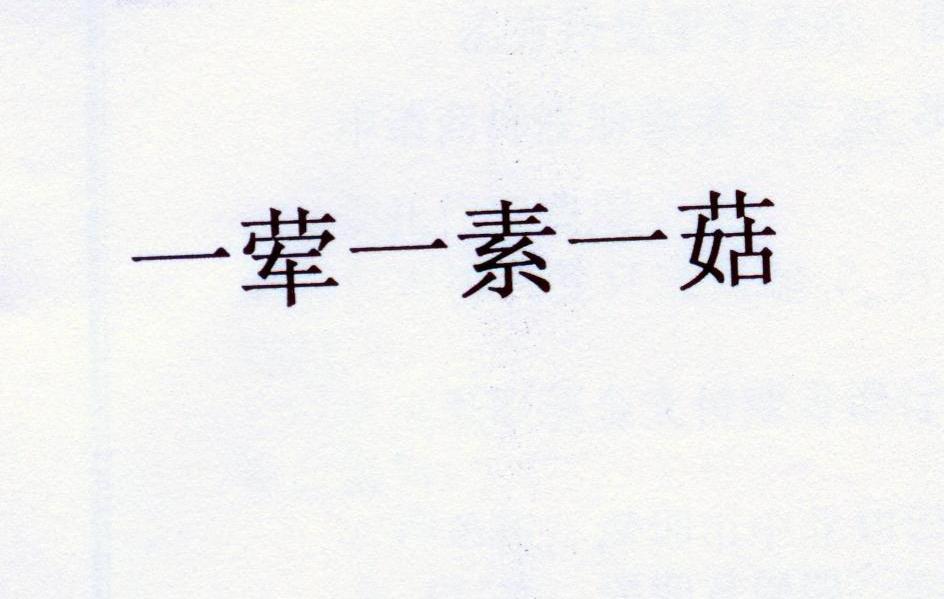 一荤一素一菇